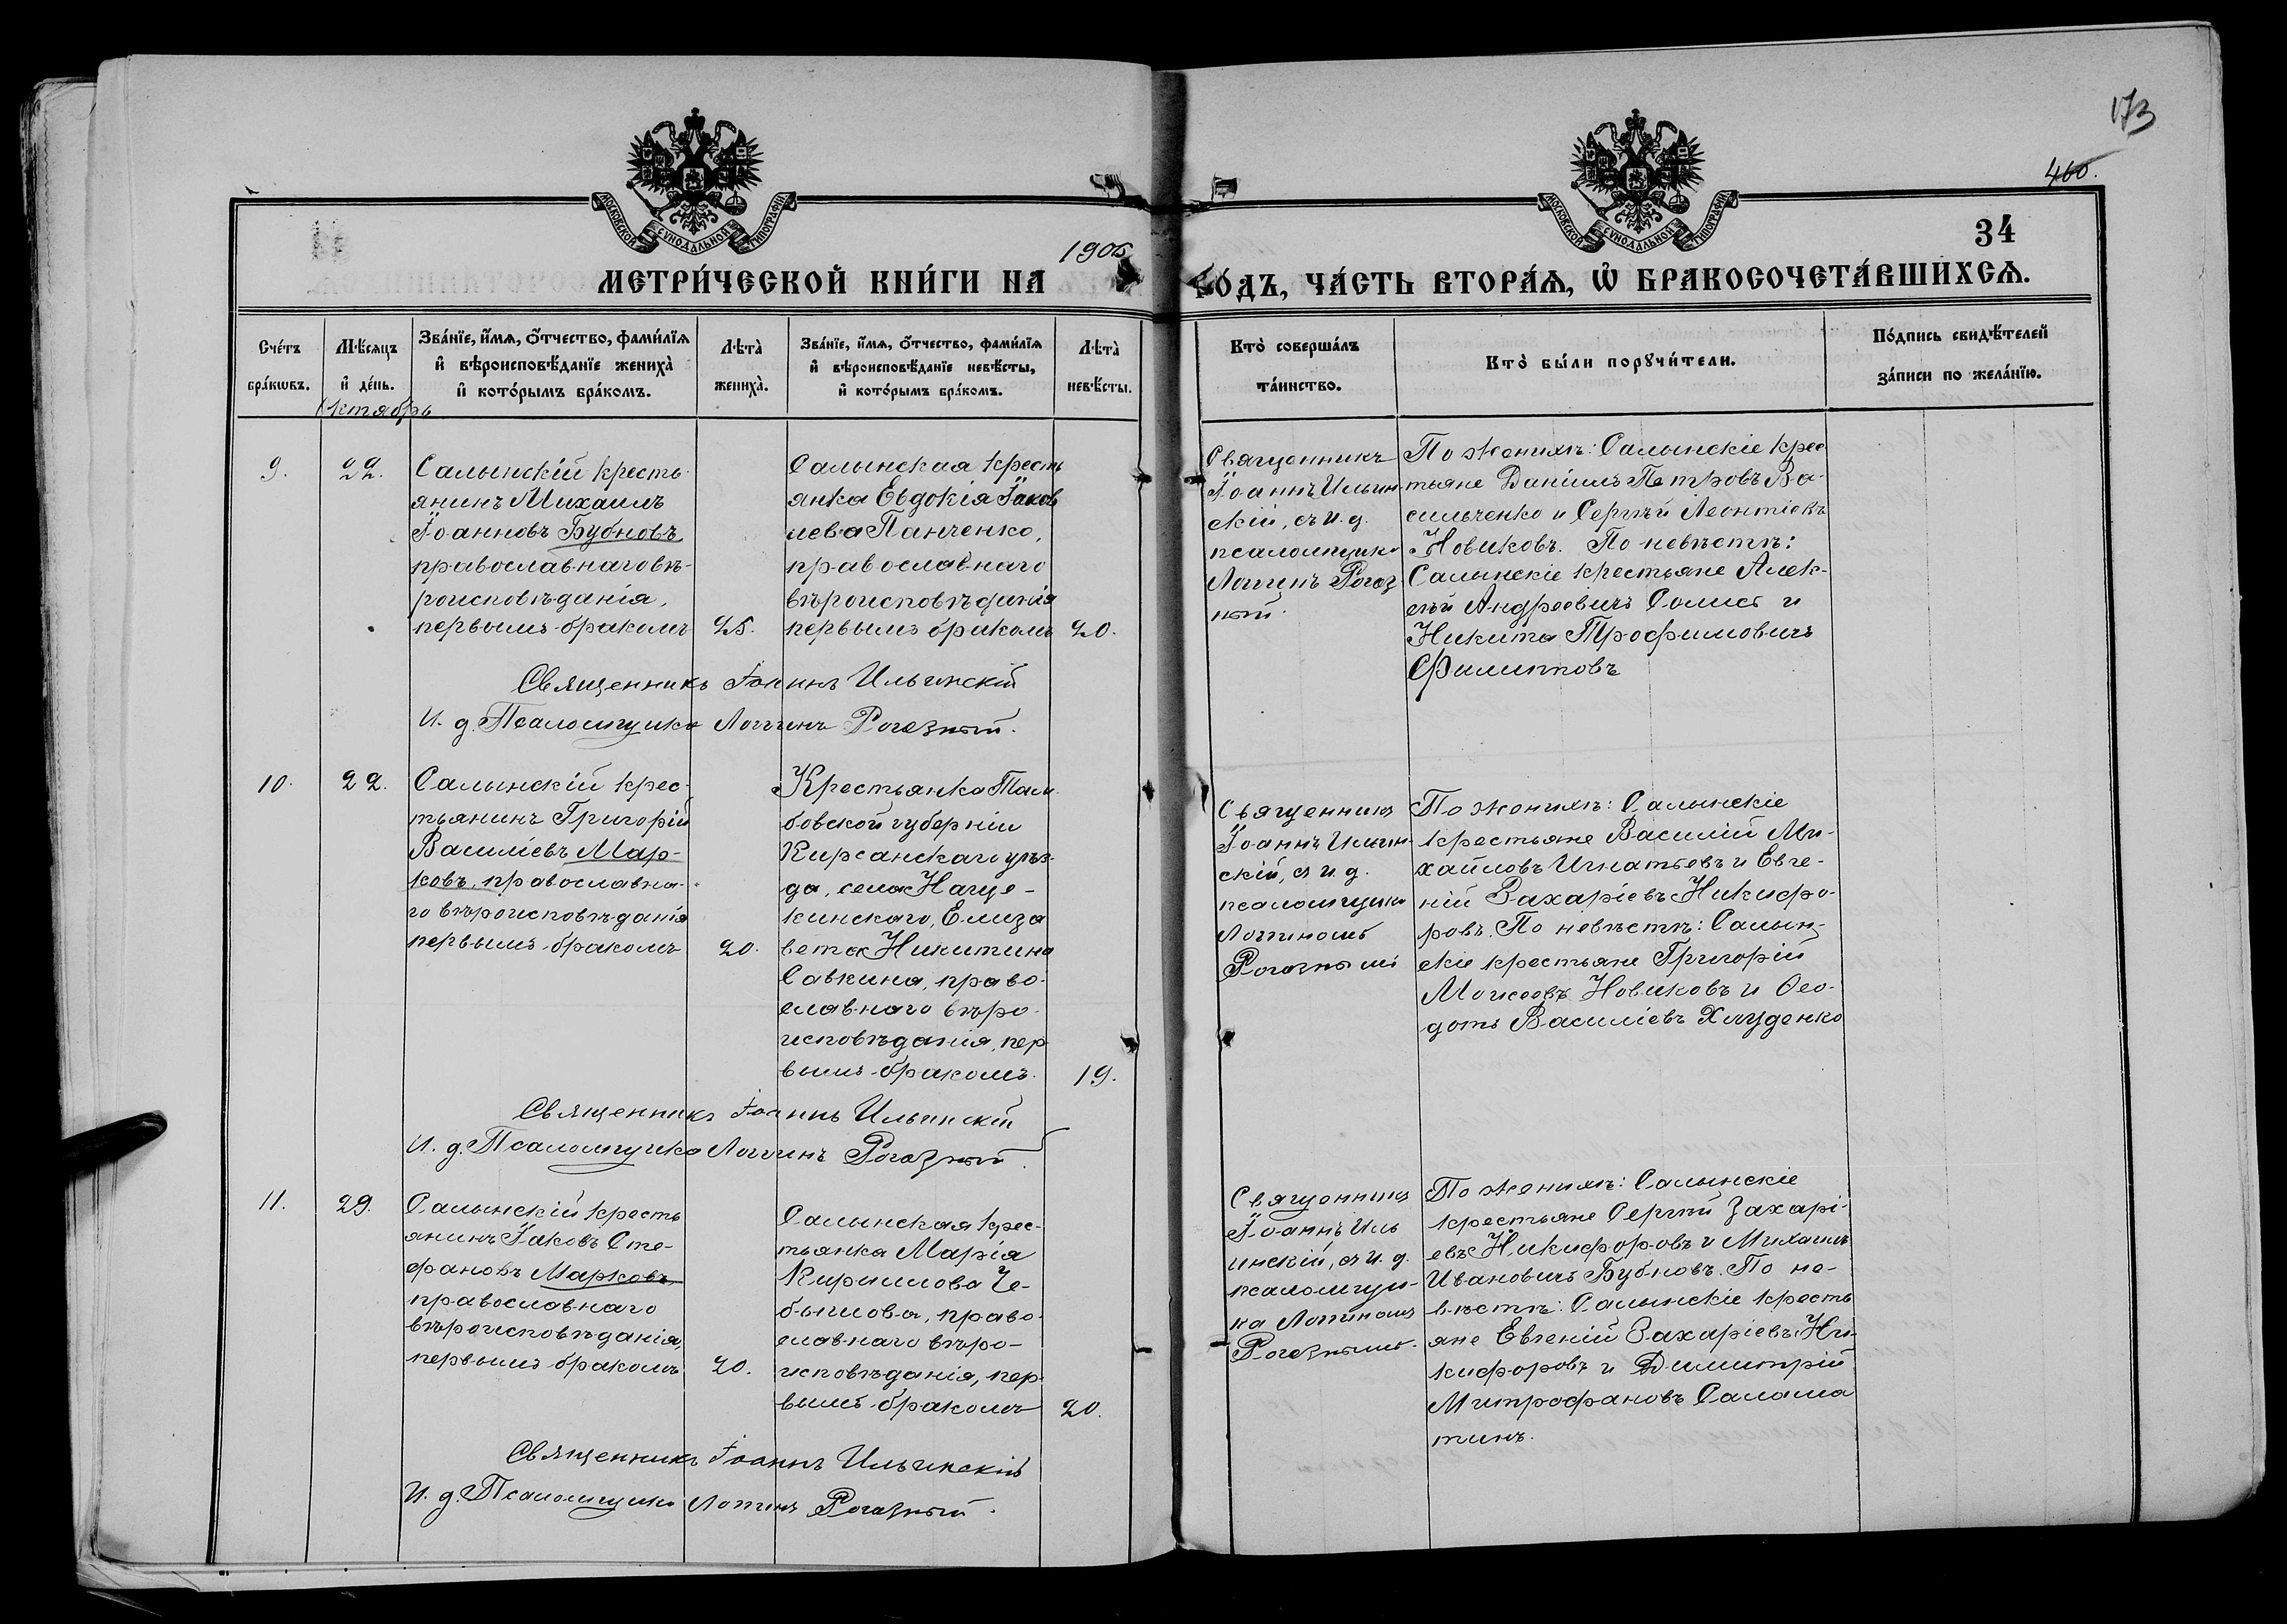 173
460.
МОСКОВСКОЙ СУНОДАЛЬНОЙ ТИПОГРАФІИ
МОСКОВСКОЙ СУНОДАЛЬНОЙ ТИПОГРАФІИ
34
1906
МЕТРИ́ЧЕСКОЙ КНИ́ГИ НА ГО́ДЪ, ЧА́СТЬ ВТОРА́Ѧ, Ѽ БРАКОСОЧЕТА́ВШИХСѦ.
Сче́тъ
бра́кѡвъ.
Мѣ́сяцъ
и҆ де́нь.
Зва́нїе, и҆́мѧ, ѻ҆́тчество, фами́лїѧ
и҆ вѣроисповѣ́данїе жениха̀
и҆ кото́рымъ бра́комъ.
Лѣта̀
жениха̀.
Зва́нїе, и҆́мѧ, ѻ҆́тчество, фами́лїѧ
и҆ вѣроисповѣ́данїе невѣ́сты,
и҆ кото́рымъ бра́комъ.
Лѣта̀
невѣ́сты.
Кто̀ соверша́лъ
та́инство.
Кто̀ бы́ли порꙋчи́тели.
По́дпись свидѣ́телей
за́писи по жела́нїю.
Октябрь
9.
22.
Салынскій кресть-
янинъ Михаилъ
Іоанновъ Бубновъ
православнаго вѣ-
роисповѣданія,
первымъ бракомъ
25.
Салынская кресть
янка Евдокія Іаков
лева Панченко,
православнаго
вѣроисповѣданія
первымъ бракомъ
20.
Священникъ
Іоаннъ Ильин-
скій, съ и. д.
псаломщика
Логгинъ Рогоз
ный.
По женихѣ: Салынскіе крес
тьяне Даніилъ Петровъ Ва-
сильченко и Сергѣй Леонтіевъ
Новиковъ. По невѣстѣ:
Салынскіе крестьяне Алек-
сѣй Андреевичъ
и
Никита Трофимовичъ
Филипповъ
Священникъ Іоаннъ Ильинскій
И. д. Псаломщика Логгинъ Рогозный.
10.
22.
Салынскій крес-
тьянинъ Григорій
Василіевъ Мар-
ковъ, православна-
го вѣроисповѣданія
первымъ бракомъ
20.
Крестьянка Там-
бовской губерніи
Кирсанскаго уѣз-
да, села Наще-
кинскаго, Елиза
вета Никитина
Савкина, право-
славнаго вѣро-
исповѣданія, пер
вымъ бракомъ.
19.
Священникъ
Іоаннъ Ильин-
скій, съ и. д.
псаломщика
Логгиномъ
Рогознымъ
По женихѣ: Салынскіе
крестьяне Василій Ми-
хайловъ Игнатьевъ и Евге-
ній Захаріевъ Никифо-
ровъ. По невѣстѣ: Салын-
скіе крестьяне Григорій
Моисеевъ Новиковъ и Ѳео-
дотъ Василіевъ Хлуденко
Священникъ Іоаннъ Ильинскій
И. д. Псаломщика Логгинъ Рогозный.
11.
29.
Салынскій кресть
янинъ Іаковъ Сте-
фановъ Марковъ,
православнаго
вѣроисповѣданія,
первымъ бракомъ
20.
Салынская крес-
тьянка Марія
Кириллова Че-
былова, право-
славнаго вѣро-
исповѣданія, пер-
вымъ бракомъ
20.
Священникъ
Іоаннъ Иль
инскій, съ и. д.
псаломщи-
ка Логгиномъ
Рогознымъ.
По женихѣ: Салынскіе
крестьяне Сергѣй Захарі-
евъ Никифоровъ и Михаилъ
Ивановичъ Бубновъ. По не-
вѣстѣ: Салынскіе кресть
яне Евгеній Захаріевъ Ни-
кифоровъ и Димитрій
Митрофановъ Салама
тинъ.
Священникъ Іоаннъ Ильинскій
И. д. Псаломщика Логгинъ Рогозный.